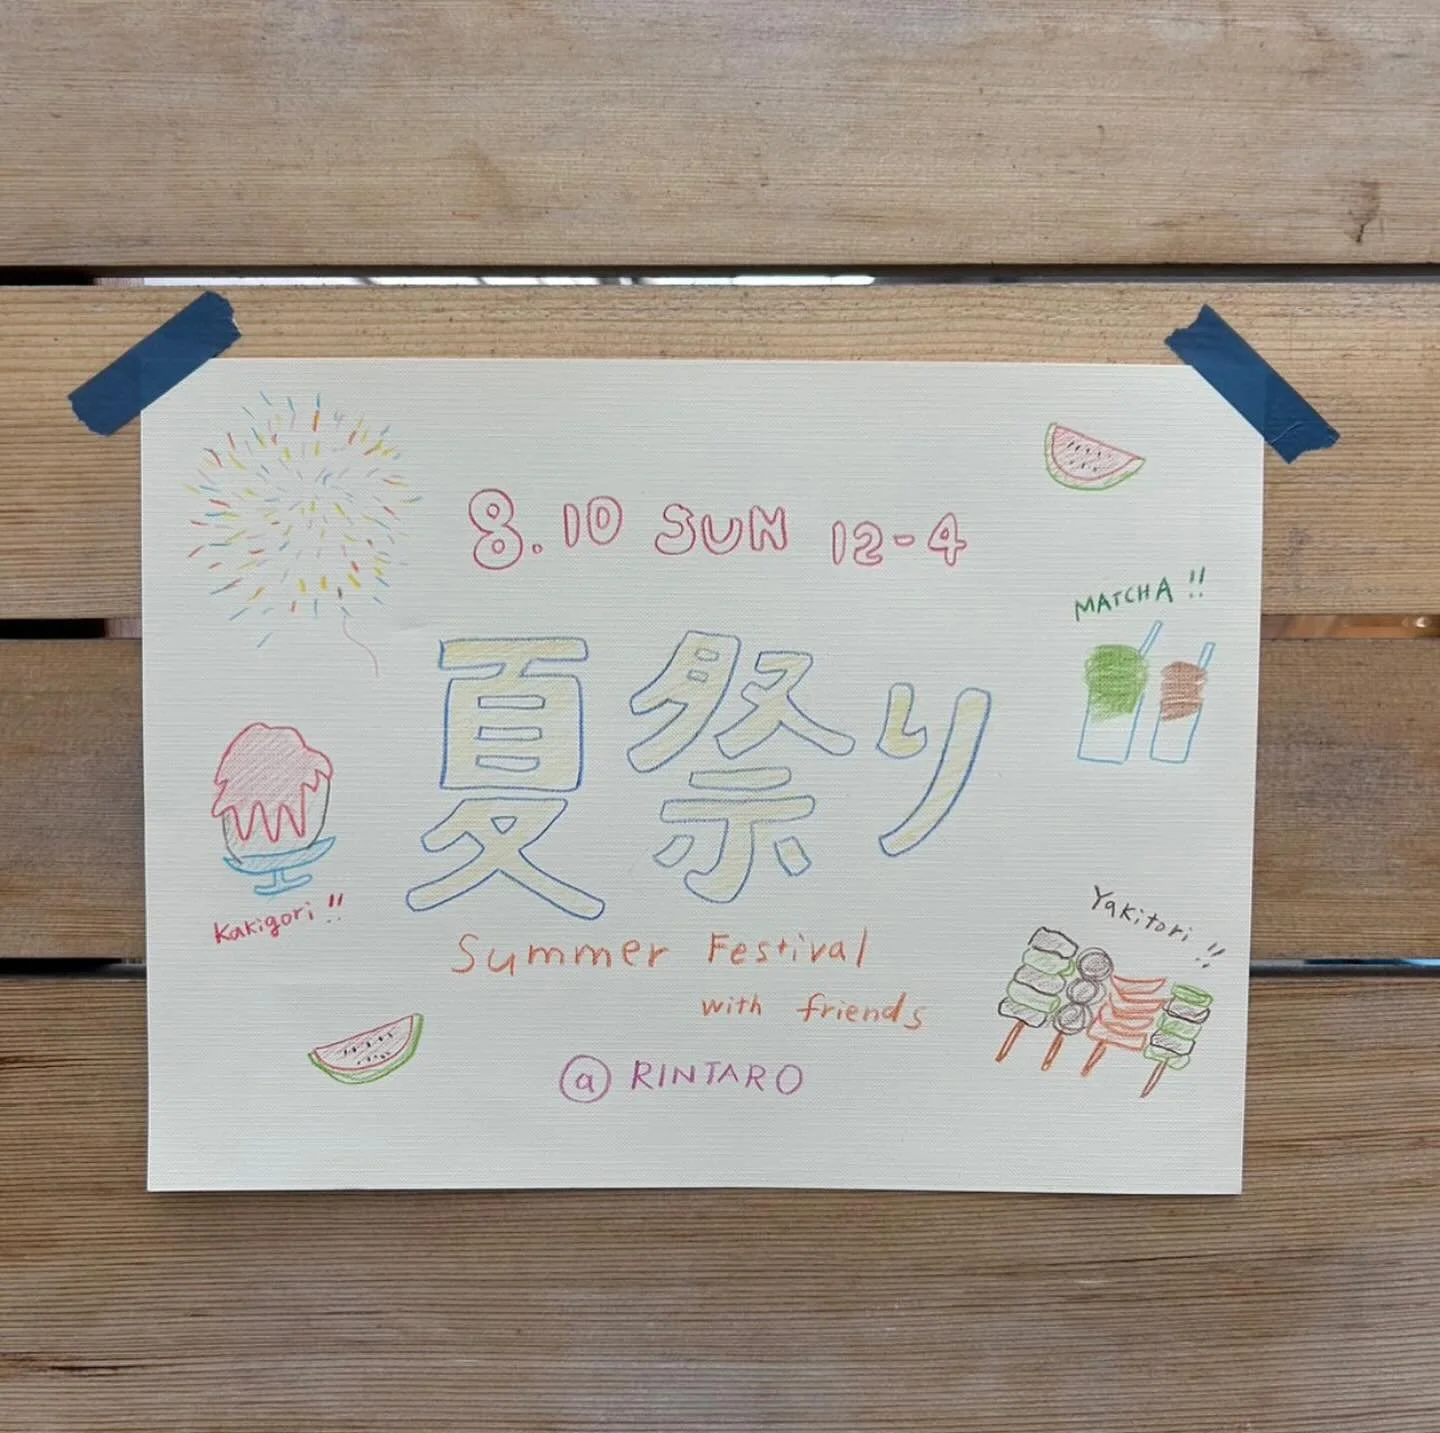 8.10 SUN 12-4
MATCHA !!
夏祭り
Kakigori !!
Yakitori !!
Summer Festival
with friends
@ RINTARO